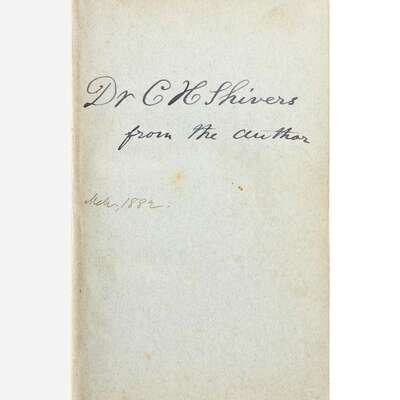 Dr C H Shivers
from the author
1882.